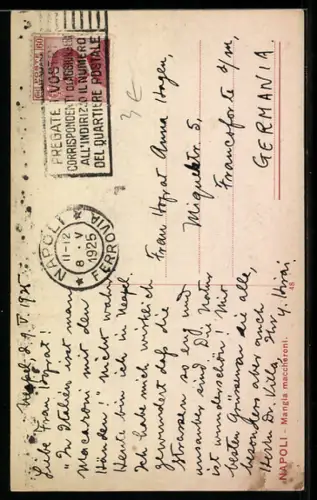 PREGATE I VOSTRI
CORRISPONDENTI D'AGGIUNGERE
ALL'INDIRIZZO IL NUMERO
DEL QUARTIERE POSTALE
NAPOLI
11-12
8 · V
1925
FERROVIA
3 €
Frau Hofrat Anna Hagen,
Miquelstr 5,
Francoforte s/m,
GERMANIA
Neapel d. V. 1925
Liebe Frau Hofrat!
"In Italien isst man
Macaroni mit den
Händen! nicht wahr
Heute bin ich in Neapel.
Ich habe mich wirklich
gewundert daß die
Strassen so eng und
unsauber sind. Die Natur
ist wunderschön! Mit
besten Grüssen an die alle,
besonders aber auch
Herrn Dr. Villa, Ihr
NAPOLI - Mangia maccheroni.